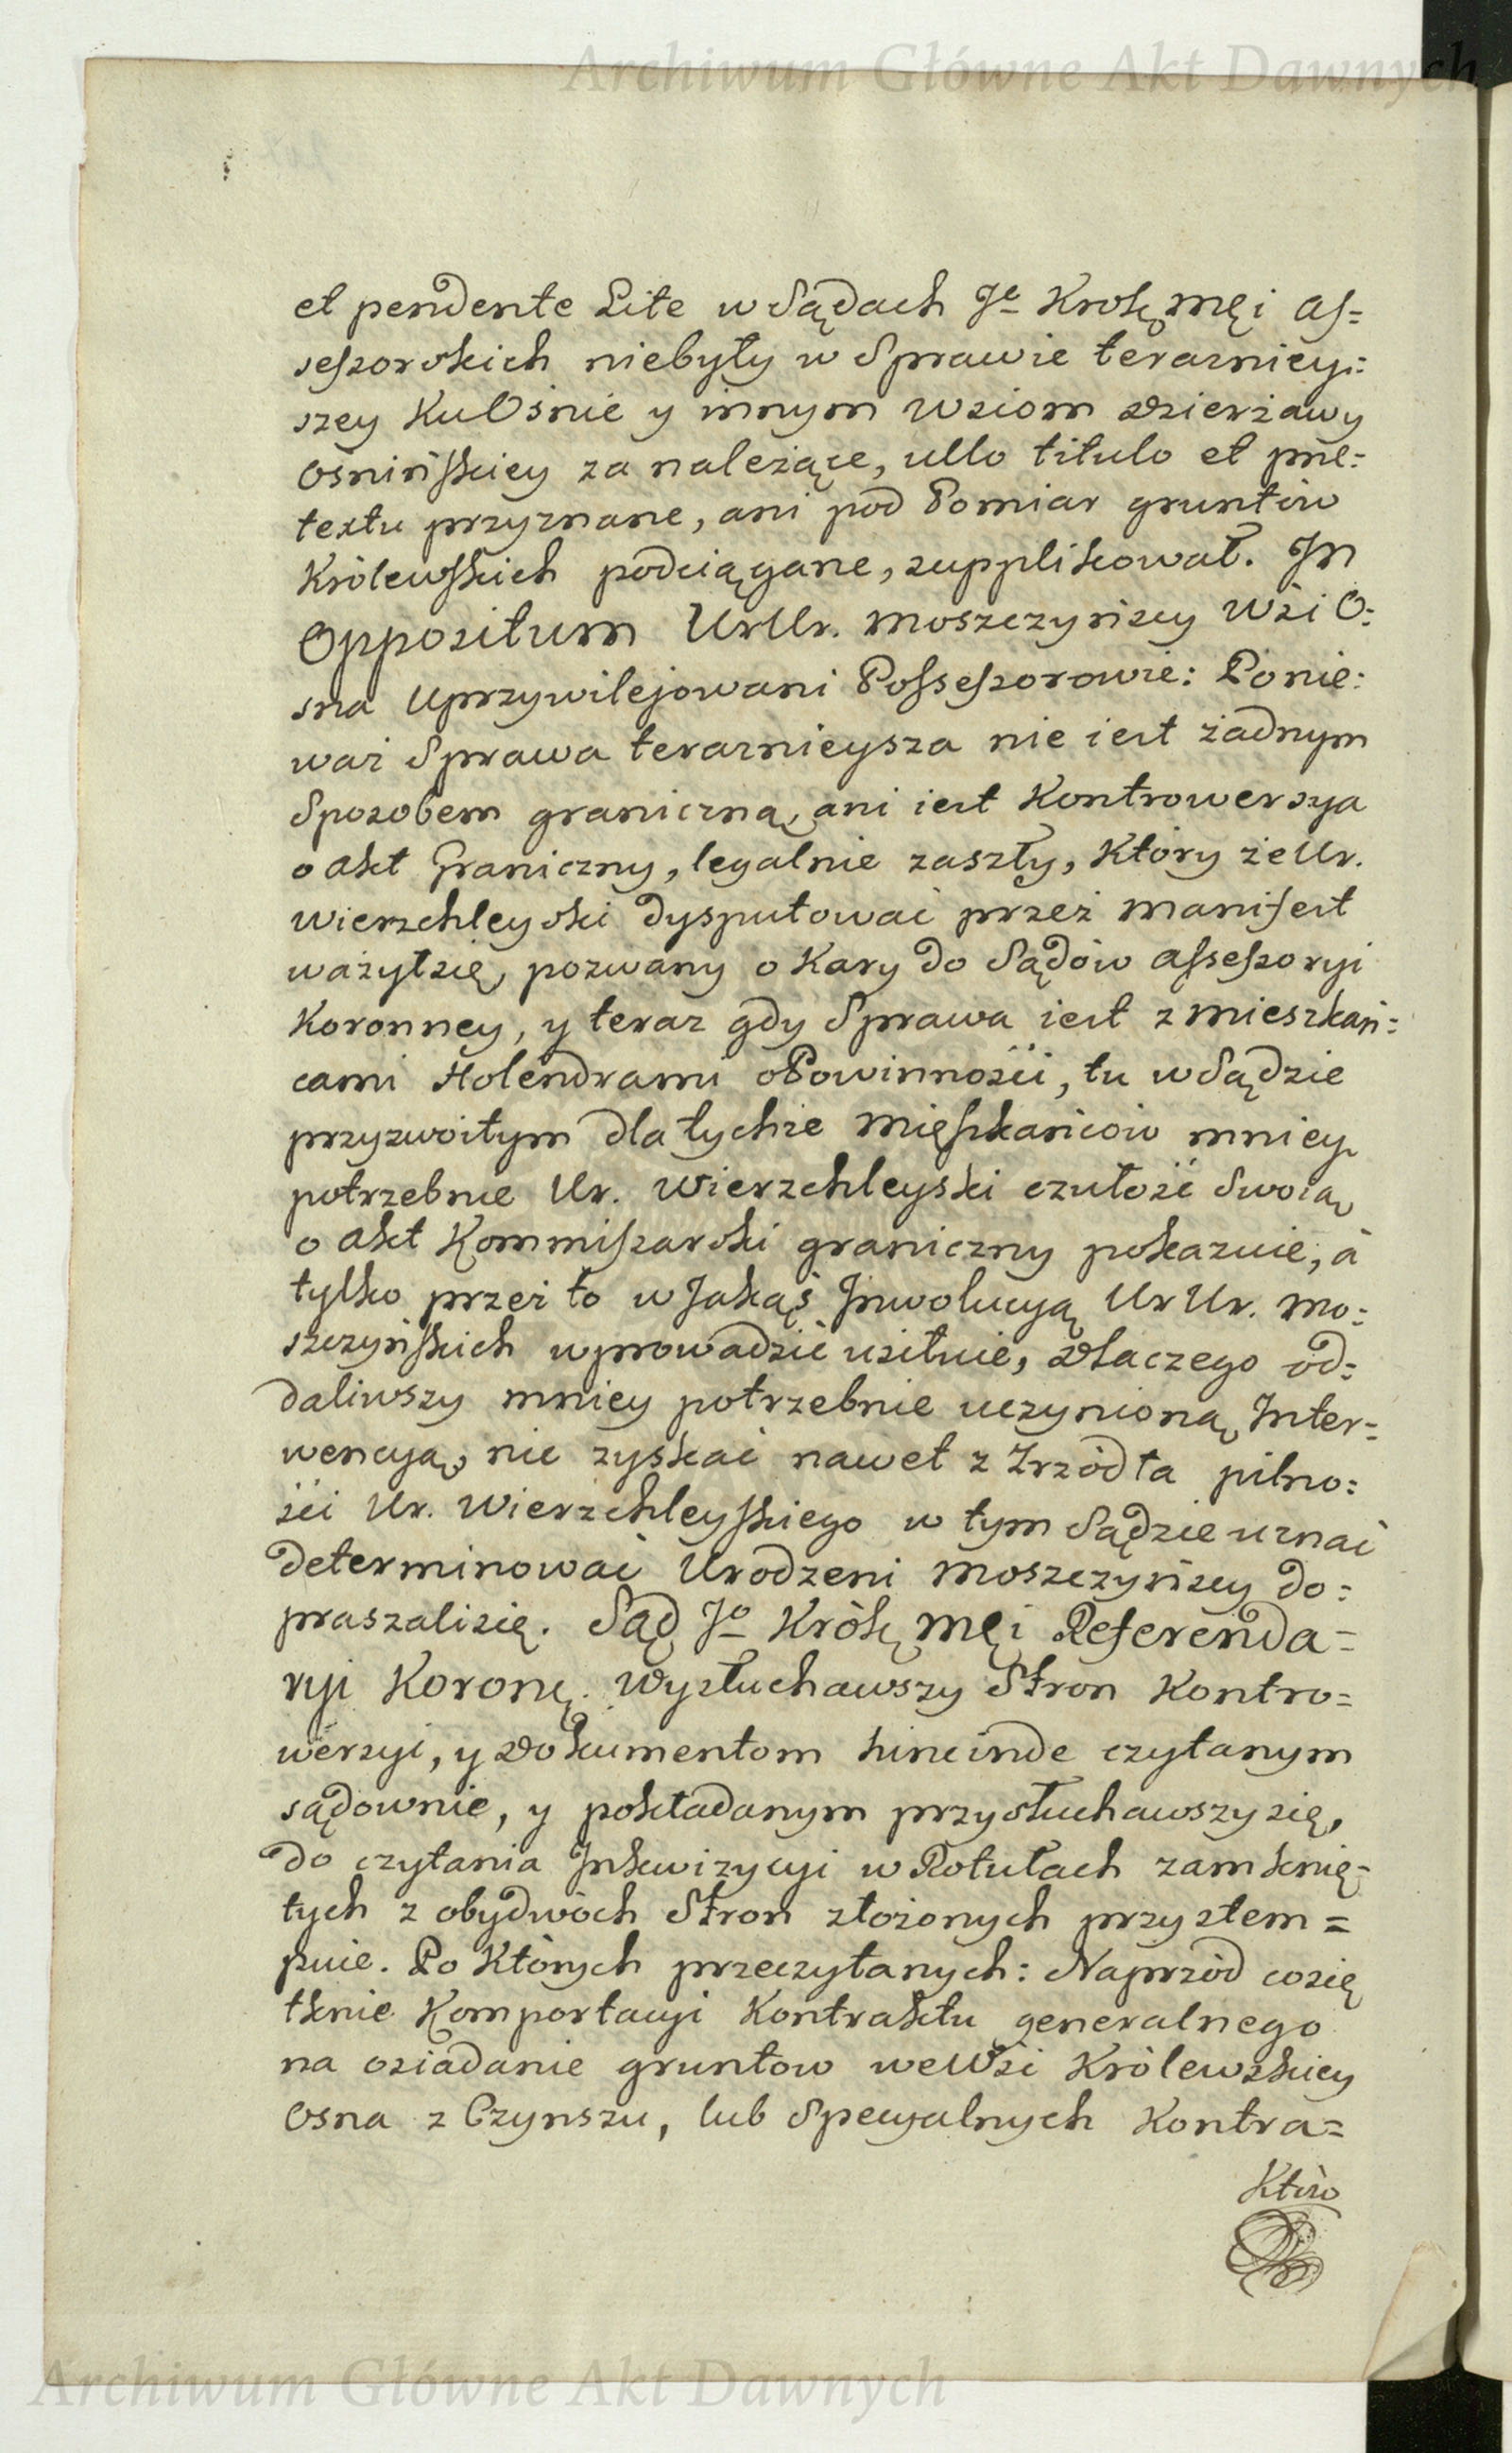 Archiwum Główne Akt Dawnych
et pendente Lite w Sądach Jº Krolę Męi As=
sessorskich niebyły w Sprawie terazniey=
szey Ku Ośnie y innym Wsiom Dzierżawy
Ośnińskiey za należące, ullo titulo et præ=
textu przyznane, ani pod Pomiar gruntów
Królewskich podciągane, supplikował. In
Oppositum UrUr. Moszczyńscy Wsi O=
sna Uprzywilejowani Possessorowie: Ponie=
waż Sprawa teraznieysza nie iest żadnym
Sposobem graniczną, ani iest Kontrowersya
o Akt Graniczny, legalnie zaszły, Który że Ur.
Wierzchleyski dysputować przez Manifest
ważył się, pozwany o Kary do Sądów Assessoryi
Koronney, y teraz gdy Sprawa iest z Mieszkań=
cami Holendrami o Powinności, tu w Sądzie
przyzwoitym dla tychże Mięszkańców mniey
potrzebnie Ur. Wierzchleyski czułość Swoią
o Akt Kommissarski graniczny pokazuie, à
tylko przez to w Jakąś Inwolucyą UrUr. Mo=
szczyńskich wprowadzić usiłuie, Dlaczego od=
daliwszy mniey potrzebnie uczynioną Inter=
wencyą, nie zyskać nawet z Zrzódła pilno=
ści Ur. Wierzchleyskiego w tym Sądzie uznać
determinować Urodzeni Moszczyńscy do=
praszali się. Sąd Jº Królę Męi Referenda=
ryi Koronę. Wysłuchawszy Stron Kontro=
wersyi, y Dokumentom hincinde czytanym
sądownie, y pokładanym przysłuchawszy się,
do czytania Inkwizycyi w Rotułach zamknię=
tych z obydwóch Stron złożonych przystem=
puie. Po Których przeczytanych: Naprzód co się
tknie Komportacyi Kontraktu generalnego
na osiadanie gruntow we Wsi Królewskiey
Osna z Czynszu, lub Specyalnych Kontra=
Któw
Archiwum Główne Akt Dawnych